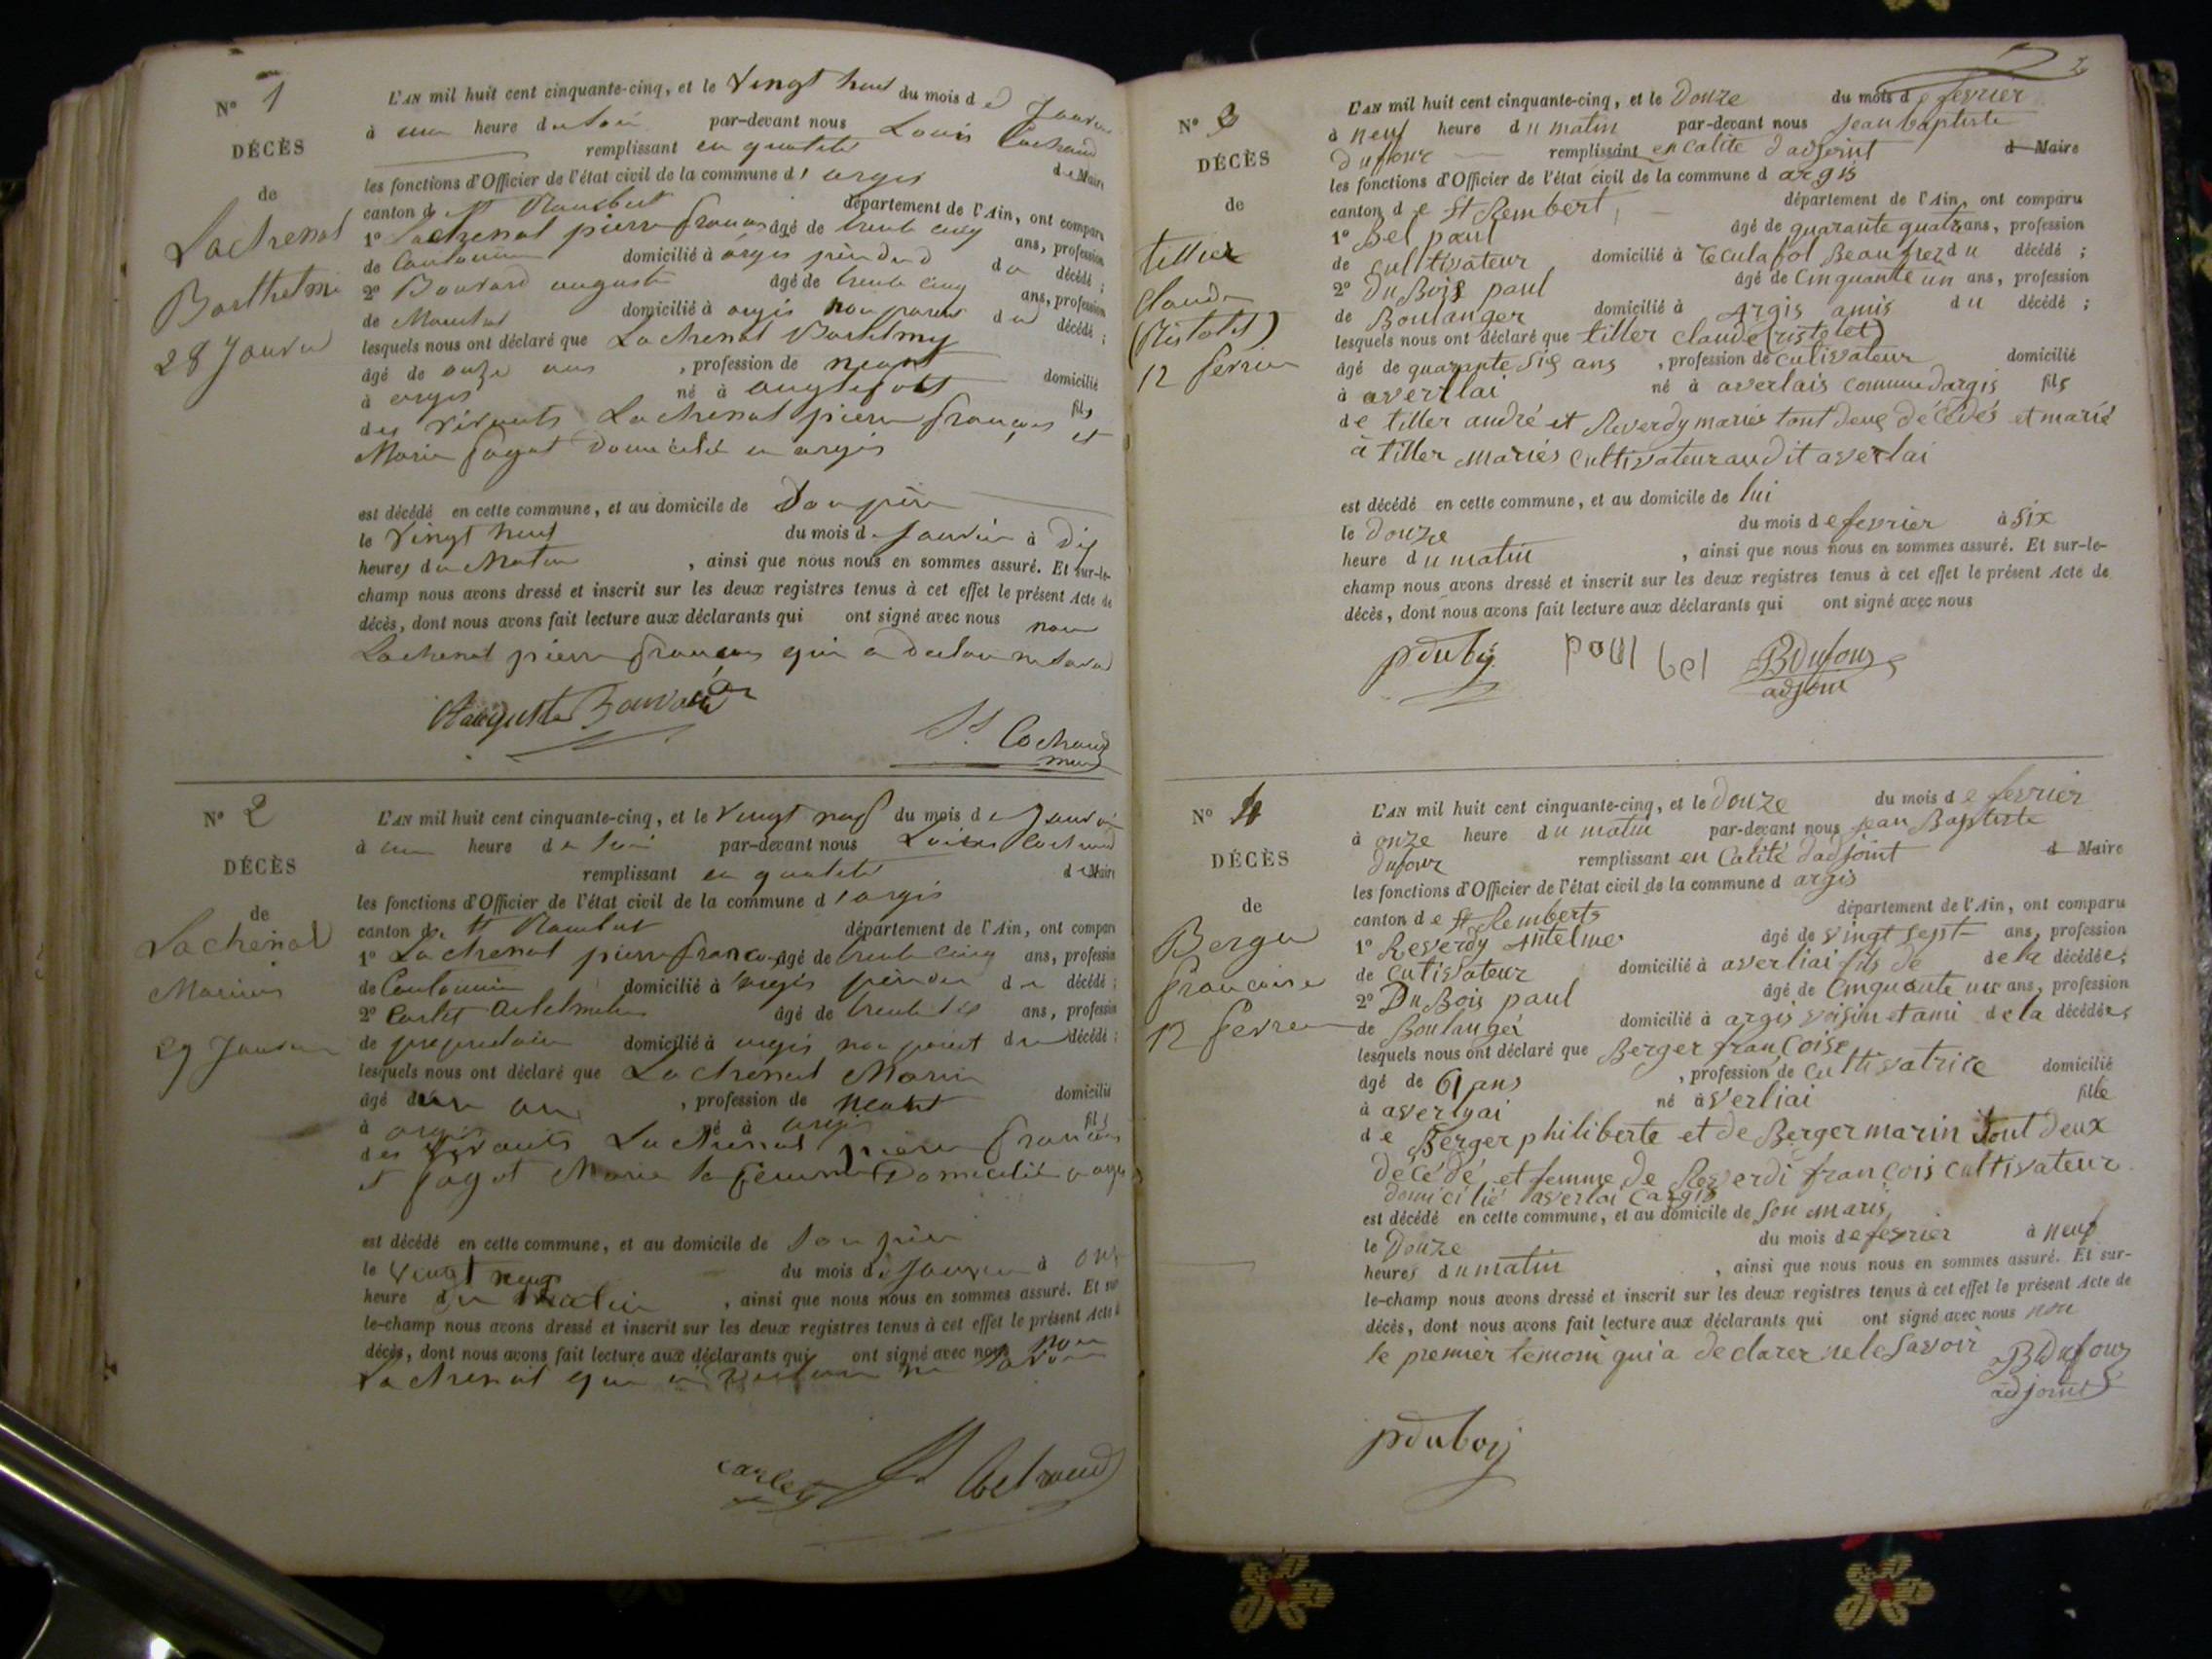 N° 1
DÉCÈS
de
Lachenal
Barthelmi
28 Janvier
L'AN mil huit cent cinquante-cinq, et le vingt huit du mois de Janvier
à une heure du soir par-devant nous Louis Cochand
remplissant en qualité de Maire
les fonctions d'Officier de l'état civil de la commune d'argis
canton de St Rambert département de l'Ain, ont comparu
1° Lachenal pierre françois âgé de trente cinq ans, profession
de domicilié à argis père du décédé ;
2° Bouvard auguste âgé de trente cinq ans, profession
de domicilié à argis non parent du décédé ;
lesquels nous ont déclaré que Lachenal Bartelmy
âgé de onze ans , profession de neant domicilié
à argis né à anglefort fils
des vivants Lachenal pierre françois et
Marie fagot domicilié en argis
est décédé en cette commune, et au domicile de Son père
le vingt huit du mois de Janvier à Dix
heures du Matin , ainsi que nous nous en sommes assuré. Et sur-le-
champ nous avons dressé et inscrit sur les deux registres tenus à cet effet le présent Acte de
décès, dont nous avons fait lecture aux déclarants qui ont signé avec nous non
Lachenal pierre françois qui a
auguste Bouvard
Ls Cochand
N° 2
DÉCÈS
de
Lachenal
29 Janvier
L'AN mil huit cent cinquante-cinq, et le vingt neuf du mois de Janvier
à une heure de soir par-devant nous Louis Cochand
remplissant en qualité de Maire
les fonctions d'Officier de l'état civil de la commune d'argis
canton de St Rambert département de l'Ain, ont comparu
1° Lachenal pierre françois âgé de trente cinq ans, profession
de domicilié à argis père du décédé ;
2° Carlet âgé de trente six ans, profession
de propriétaire domicilié à argis non parent du décédé ;
lesquels nous ont déclaré que Lachenal
âgé d'un an , profession de neant domicilié
à argis né à argis fils
des vivants Lachenal pierre françois
et fagot Marie sa femme Domicilié
est décédé en cette commune, et au domicile de Son père
le vingt neuf du mois de Janvier à
heure du Matin , ainsi que nous nous en sommes assuré. Et sur-
le-champ nous avons dressé et inscrit sur les deux registres tenus à cet effet le présent Acte de
décès, dont nous avons fait lecture aux déclarants qui ont signé avec nous non
Lachenal qui a
carlet Ls Cochand
2
N° 3
DÉCÈS
de
tillier
Claude
(Ristolet)
12 fevrier
L'AN mil huit cent cinquante-cinq, et le Douze du mois de fevrier
à neuf heure du matin par-devant nous Jean baptiste
dufour remplissant en calite d'adjoint d Maire
les fonctions d'Officier de l'état civil de la commune d argis
canton de St Rembert département de l'Ain, ont comparu
1° Bel paul âgé de quarante quatre ans, profession
de cultivateur domicilié à Beaufrez du décédé ;
2° DuBois paul âgé de Cinquante un ans, profession
de Boulanger domicilié à Argis amis du décédé ;
lesquels nous ont déclaré que tiller claude (ristolet)
âgé de quarante six ans , profession de cultivateur domicilié
à averllai né à averlais commune d'argis fils
de tiller andré et Reverdy marie tout deux décédés et marié
à tiller mariés cultivateur audit averlai
est décédé en cette commune, et au domicile de lui
le douze du mois de fevrier à six
heure du matin , ainsi que nous nous en sommes assuré. Et sur-le-
champ nous avons dressé et inscrit sur les deux registres tenus à cet effet le présent Acte de
décès, dont nous avons fait lecture aux déclarants qui ont signé avec nous
pduboy paul bel JBDufour
adjoint
N° 4
DÉCÈS
de
Berger
francoise
12 fevrier
L'AN mil huit cent cinquante-cinq, et le douze du mois de fevrier
à onze heure du matin par-devant nous jean Baptiste
dufour remplissant en Calité dadjoint d Maire
les fonctions d'Officier de l'état civil de la commune d argis
canton de St Remberts département de l'Ain, ont comparu
1° Reverdy Antelme âgé de vingt sept ans, profession
de cutivateur domicilié à averliai fils de de la décédée;
2° DuBois paul âgé de Cinquante un ans, profession
de Boulanger domicilié à argis voisin et ami de la décédée;
lesquels nous ont déclaré que Berger françoise
âgé de 61 ans , profession de cultivatrice domicilié
à averlyai né àverliai fille
de Berger philiberte et de Berger marin tout deux
décédé et femme de Reverdi françois cultivateur
domicilié averlai
est décédé en cette commune, et au domicile de son maris
le Douze du mois de fevrier à neuf
heures du matin , ainsi que nous nous en sommes assuré. Et sur-
le-champ nous avons dressé et inscrit sur les deux registres tenus à cet effet le présent Acte de
décès, dont nous avons fait lecture aux déclarants qui ont signé avec nous non
le premier temoin qui a declarer nele savoir JBDufour
adjoint
pduboy